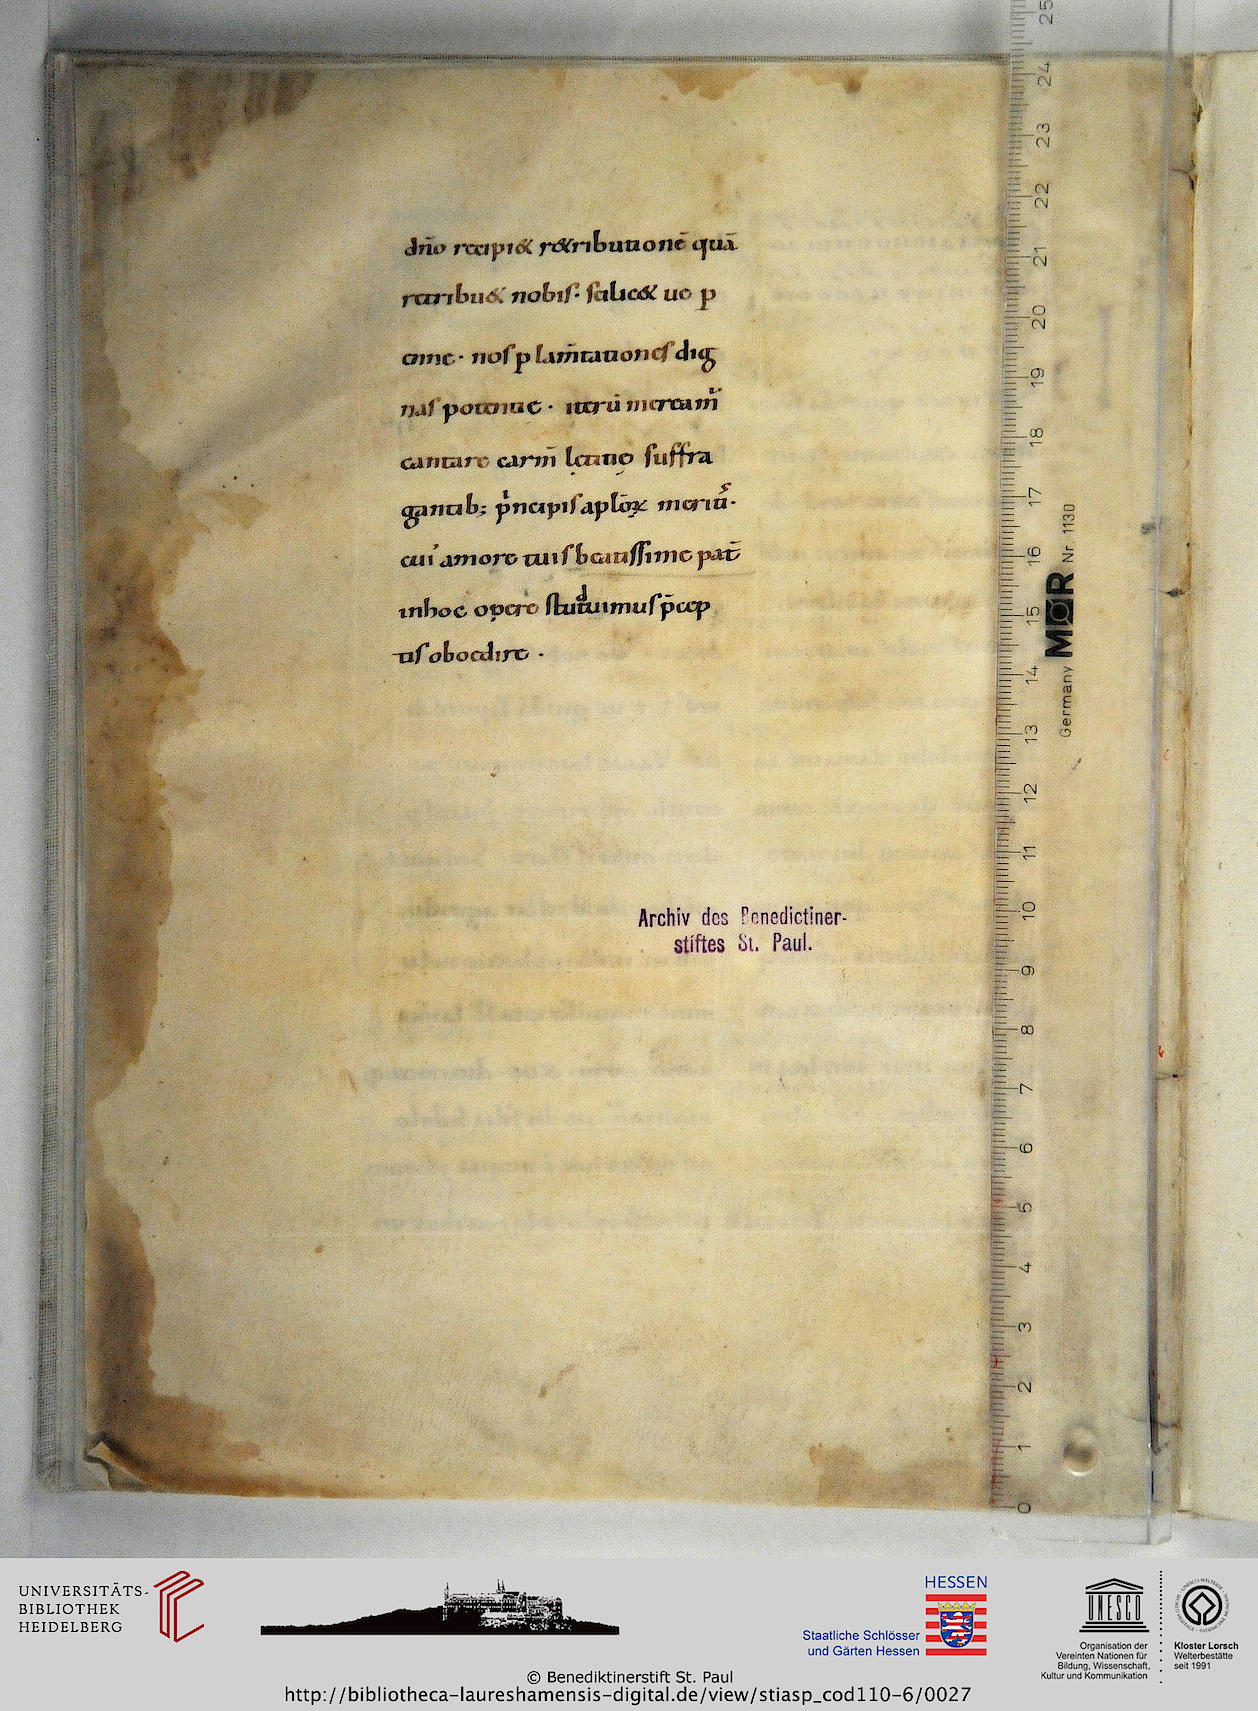 dn̄o recipi& r&ributionē quā
r&ribu& nobis· scilic& uo p
enne· nos p lam̄tationes dig
nas potentie· iterū meream̄
cantare carm̄ letitię suffra
gantib; p̄ncipis aplōꝝ meritis·
cui' amore tuis beatissime pat̄
in hoc opere studuimus p̄cep
tis oboedire·
Archiv des Benedictiner-
stiftes St. Paul.
25
24
23
22
21
20
19
18
17
16
15
14
13
12
11
10
9
8
7
6
5
4
3
2
1
0
Germany MOR Nr. 1130
UNIVERSITÄTS-
BIBLIOTHEK
HEIDELBERG
HESSEN
Staatliche Schlösser
und Gärten Hessen
UNESCO
Organisation der
Vereinten Nationen für
Bildung, Wissenschaft,
Kultur und Kommunikation
Kloster Lorsch
Welterbestätte
seit 1991
© Benediktinerstift St. Paul
http://bibliotheca-laureshamensis-digital.de/view/stiasp_cod110-6/0027